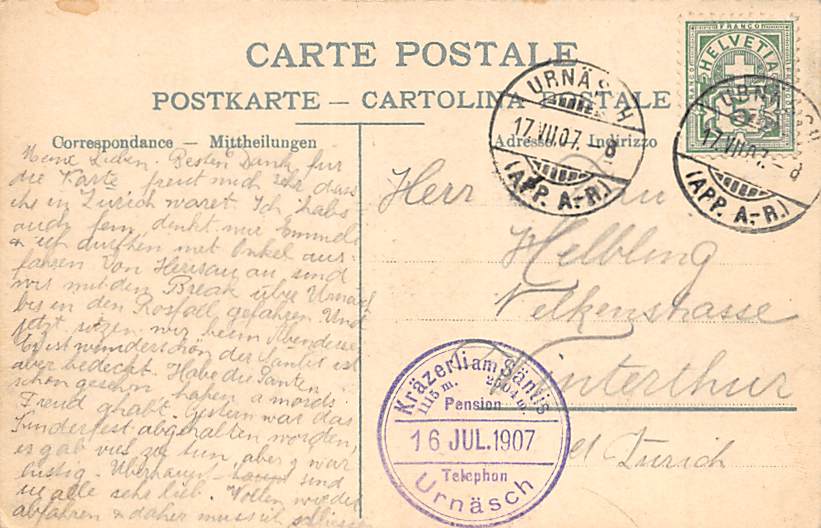 CARTE POSTALE
POSTKARTE — CARTOLINA POSTALE
Correspondance — Mittheilungen
Adresse Indirizzo
FRANCO
HELVETIA
URNÄSCH
17.VII.07. 8
(APP. A.-R.)
URNÄSCH
17.VII.07. 8
(APP. A.-R.)
Meine Lieben. Besten Dank für
die Karte freut mich sehr dass
ihr in Zürich waret. Ich habs
auch fein, denkt nur Emmeli
& ich durften mit Onkel aus-
fahren. Von Herisau an, sind
wir mit dem Break über Urnäsch
bis in den Rosfall gefahren. Und
jetzt sitzen wir beim Abendessen
Es ist wunderschön der Säntis ist
aber bedeckt. Habe die Tanten
schon gesehen, haben a mords
Freud ghabt. Gestern war das
Kinderfest abgehalten worden,
es gab viel zu tun, aber s'war
lustig. Überhaupt sind
sie alle sehr lieb. Wollen wieder
abfahren & daher muss ich schliessen
Herr
Helbling
Nelkenstrasse
Winterthur
Ct Zürich
Kräzerli am Säntis
1115 m. 2504 m.
Pension
16 JUL.1907
Telephon
Urnäsch